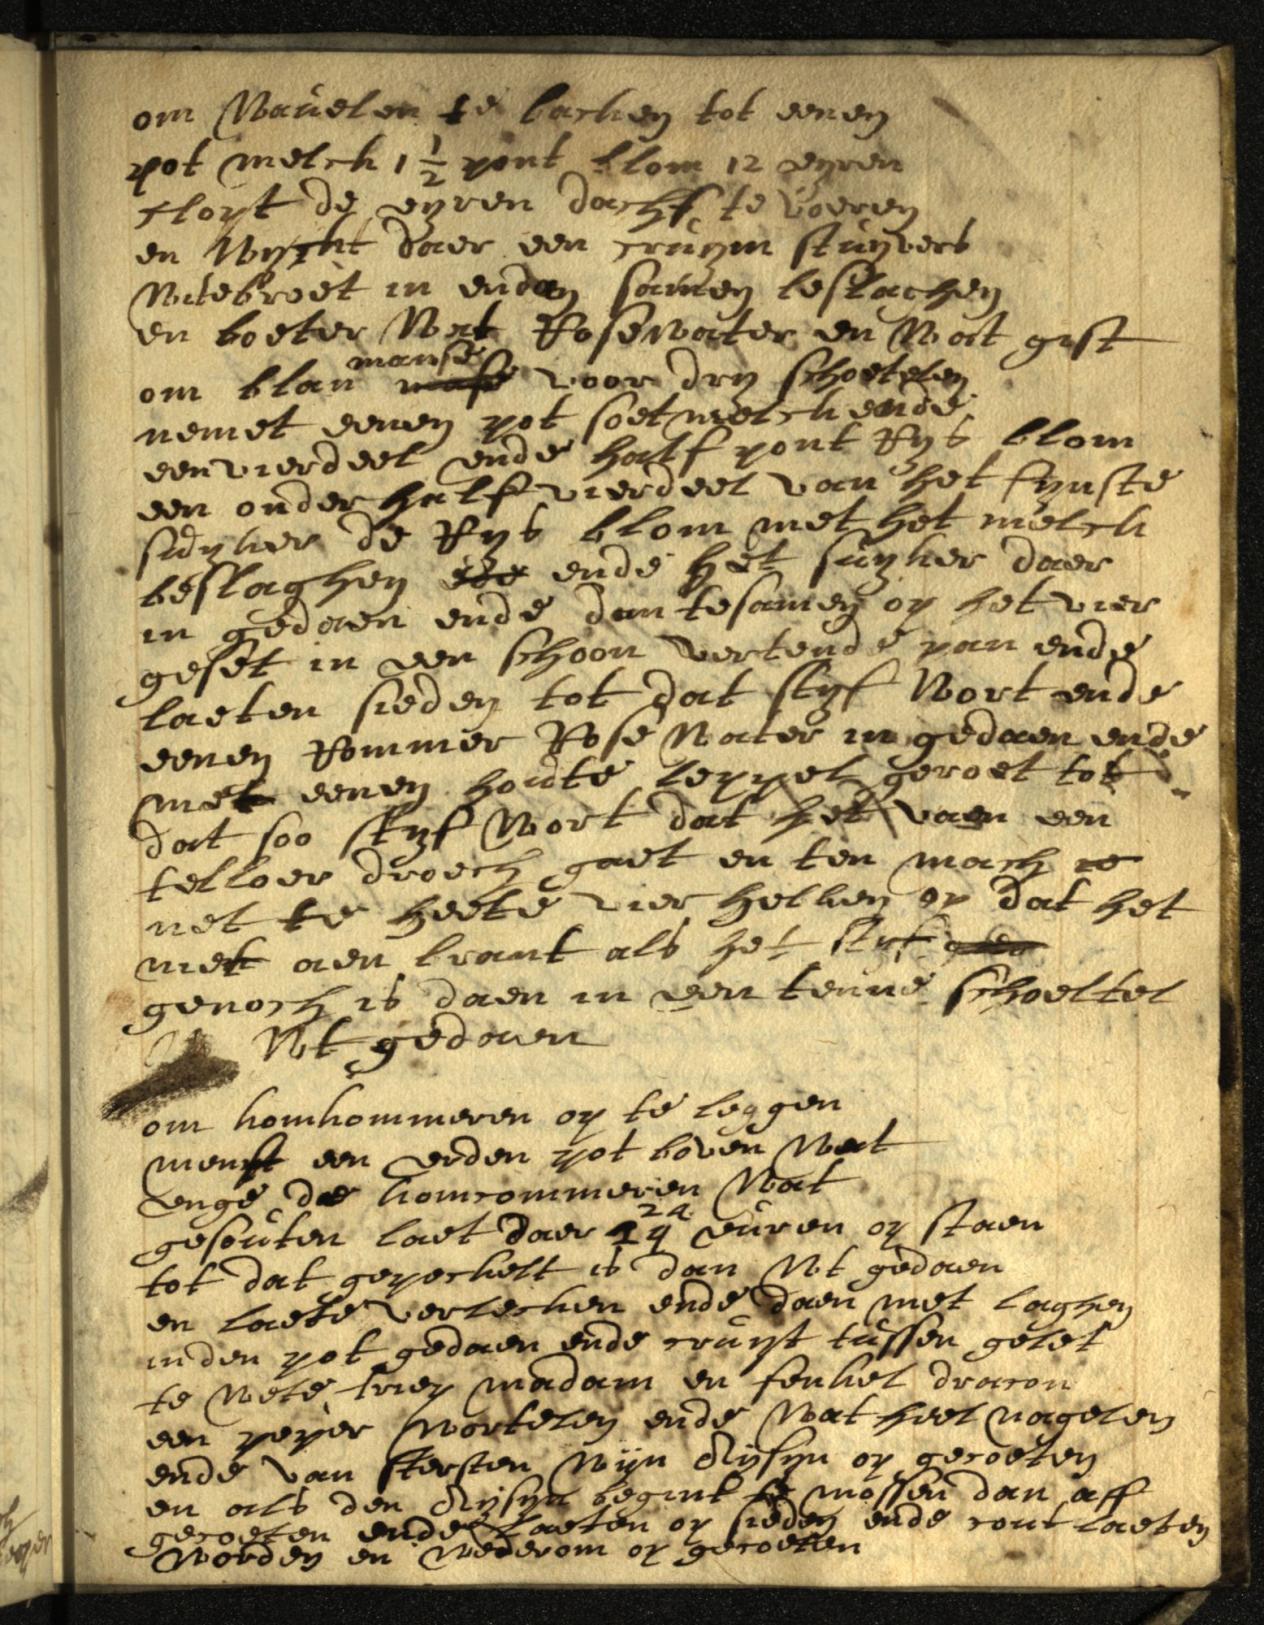 om Wauelen te backen tot eenen
pot melck 1 1/2 pont blom 12 eyren
clopt de eyren dachs te voeren
en daer een cruym stuyvers
Wittebroet in endan samen beslachen
en boeter Wat Rosewater en Wat gist
om blan manse voor dry schoetelen
nemet eenen pot soetmelck ende
eenvierdeel ende half pont Rys blom
een onderhalf vierdeel van het fynste
suyker de Rys blom met het melck
beslaghen ende het suyker daer
in gedaen ende dan tesamen op het vier
geset in een schoon vertende pan ende
laeten sieden tot dat styf Wort ende
eenen Rommer Rose Water in gedaen ende
met eenen houte leppel geroet tot
dat soo styf Wort dat het vaen een
telloer droech gaet en ten mach
net te heete vier hebben op dat het
niet aen brant als het styf
genoch is daen in een tenne schoeltel
Wt gedaen
om komkommeren op te leggen
nempt een erden pot boven Wat
enge de komcommeren Wat
gesouten laet daer 24 euren op staen
tot dat gepeckelt is dan Wt gedaen
en laete verlecken ende daen met laghen
inden pot gedaen ende cruyt tussen gelet
te Wete triep madam en fenkel dracon
een peper Wortelen ende Wat heel nagelen
ende van stersten Wyn Asyn op gegoeten
en als den Asyn begint te mossen dan aff
gegoeten ende laeten op sieden ende cout laeten
Worden en Wederom op gegoeten